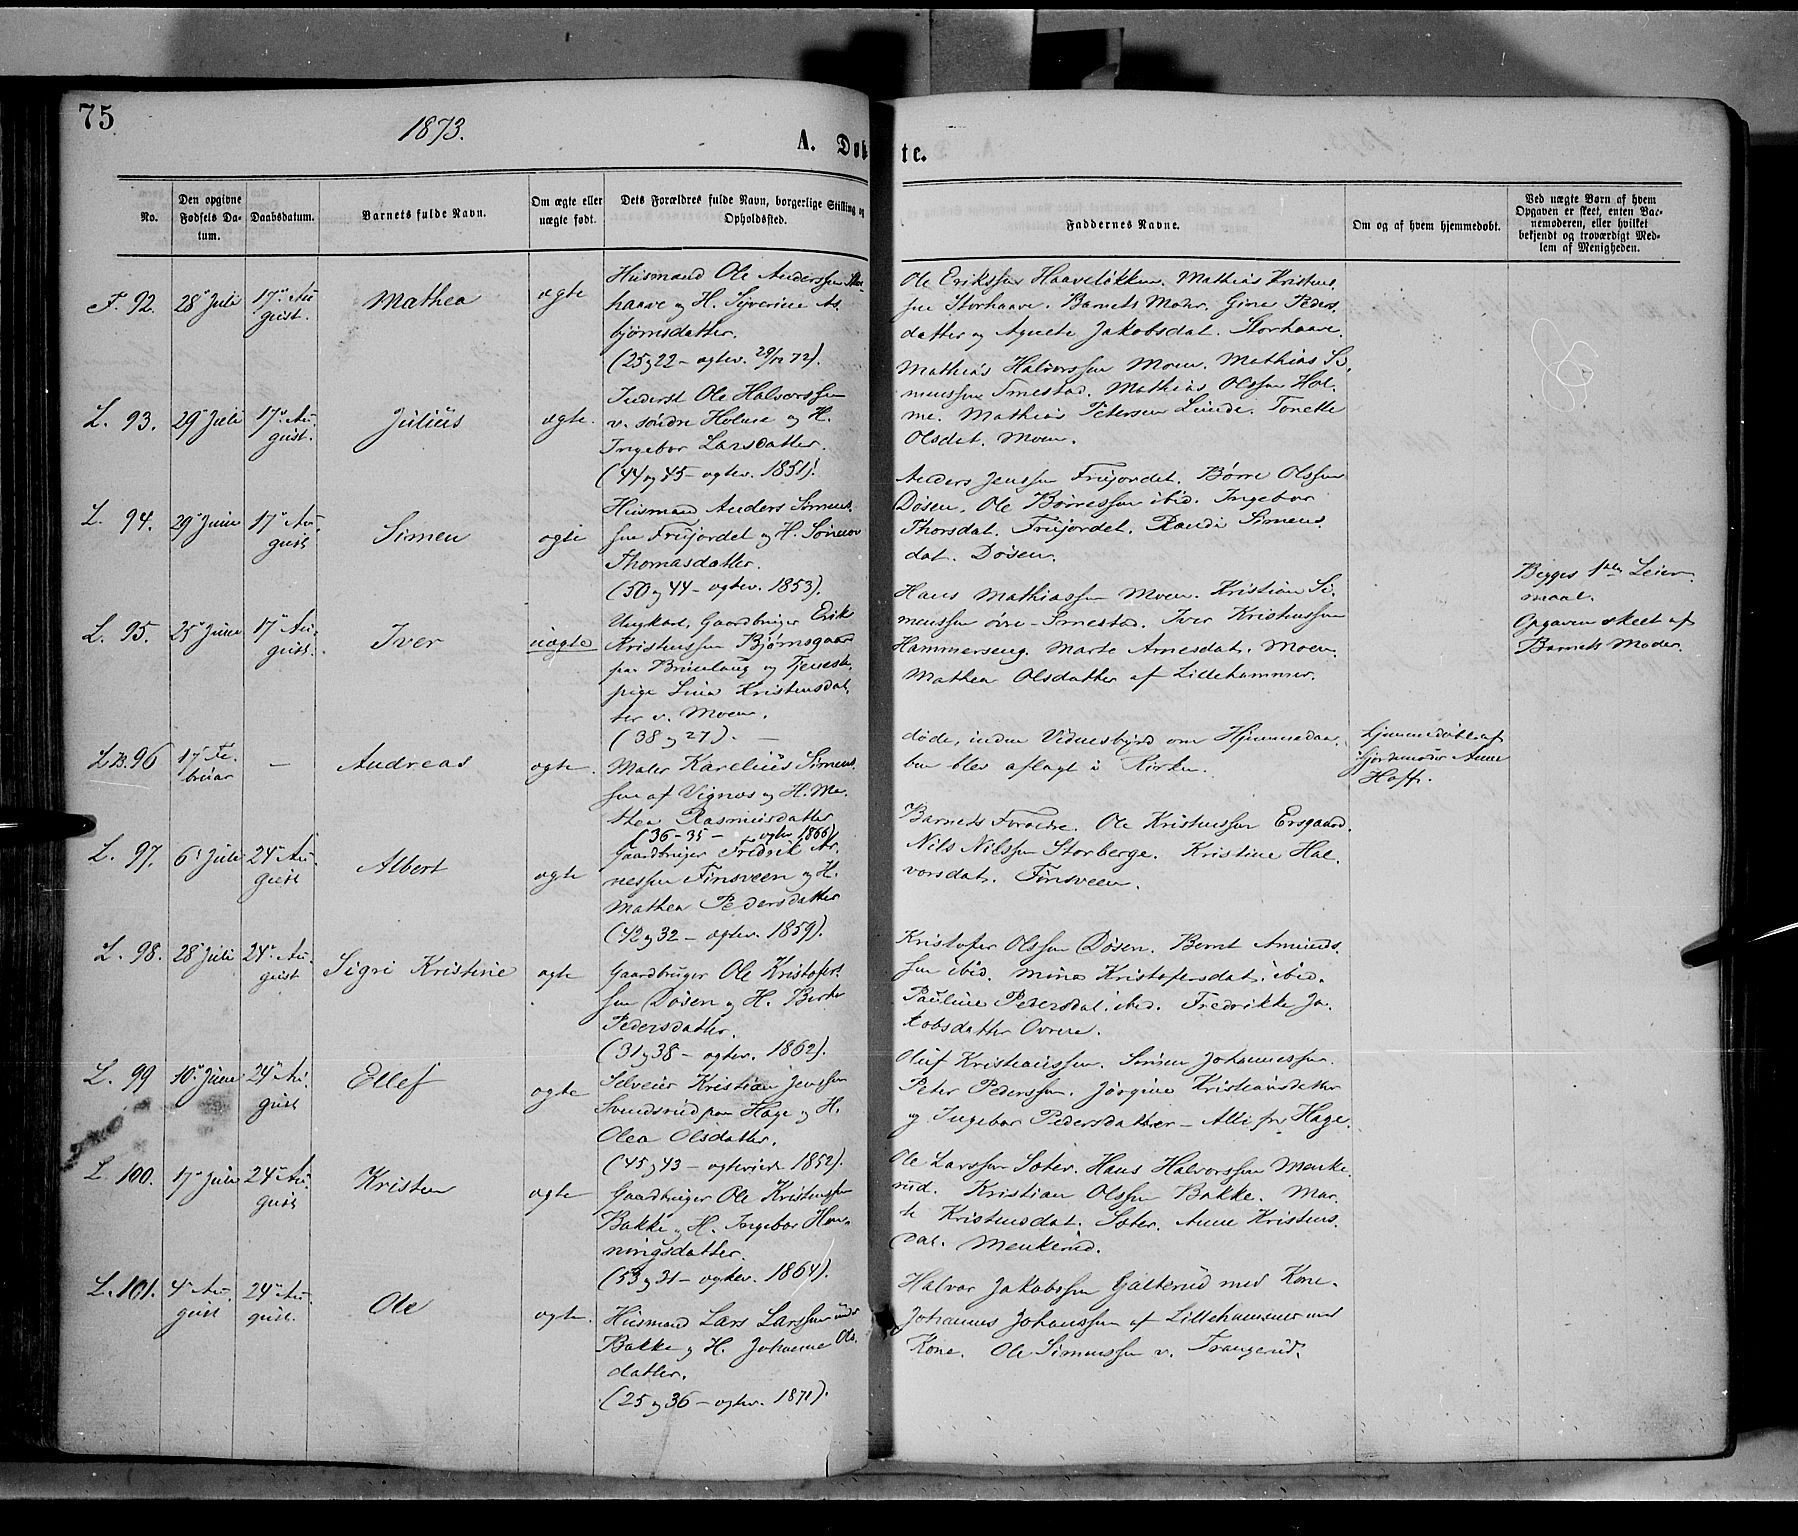 75
1873.
A. Døbte.
No.
Den opgivne Fødsels Datum.
Daabsdatum.
Barnets fulde Navn.
Om ægte eller uægte født.
Dets Forældres fulde Navn, borgerlige Stilling og Opholdsted.
Faddernes Navne.
Om og af hvem hjemmedøbt.
Ved uægte Børn af hvem Opgaven er skeet, enten Barnemoderen, eller hvilket bekjendt og troværdigt Medlem af Menigheden.
F. 92.
28de Juli
17de Au-
gust.
Mathea
ægte
Husmand Ole Anderssen Stor-
haave og H. Syverine As-
bjørnsdatter.
(25 og 22 – ægtev. 29/12 72).
Ole Erikssen Haaveløkken. Mathias Kristens-
sen Storhaave. Barnets Moder. Gine Peders-
datter og Agnete Jakobsdat. Storhaave.
L. 93.
29de Juli
17de Au-
gust.
Julius
ægte.
Inderst Ole Halvorssen
v. søndre Holme og H.
Ingebor Larsdatter.
(44 og 45 – ægtev. 1851).
Mathias Halvorssen Moen. Mathias Si-
menssen Smestad. Mathias Olssen Hol-
me. Mathias Petersen Lunde. Tonette
Olsdat. Moen.
L. 94.
29de Juni
17de Au-
gust
Simen
ægte
Husmand Anders Simens-
sen Frujordet og H.
Thomasdatter.
(50 og 44 – ægtev. 1853).
Anders Jenssen Frujordet. Børre Olssen
Døsen. Ole Børressen ibid. Ingebor
Thorsdat. Frujordet. Randi Simens-
dat. Døsen.
L. 95.
25de Juni
17de Au-
gust.
Iver
uægte
Ungkarl, Gaardbruger Erik
Kristenssen Bjørnsgaard
paa Brunlaug og Tjeneste-
pige Lina Kristensdat-
ter v. Moen.
(38 og 27). –
Hans Mathiassen Moen. Kristian Si-
menssen øvre-Smestad. Iver Kristenssen
Hammerseng. Marte Arnesdat. Moen.
Mathea Olsdatter af Lillehammer.
Begges 1ste Leier-
maal.
Opgaven skeet af
Barnets Moder.
L.B. 96
17de Fe-
bruar
–
Andreas
ægte.
Maler Karelius Simens-
sen af Vignæs og H. Ma-
thea Rasmusdatter
(36-35 – ægtev. 1866)
døde, inden Vidnesbyrd om Hjemmedaa-
ben blev aflagt i Kirken.
Hjemmedøbt af
Gjordemoder Anne
Hoff.
L. 97.
6te Juli
24de Au-
gust
Albert
ægte
Gaardbruger Fredrik Ar-
nessen Finsveen og H.
Mathea Pedersdatter
(42 og 32 – ægtev. 1859).
Barnets Forældre. Ole Kristenssen Ersgaard.
Nils Nilssen Storberge. Kristine Hal-
vorsdat. Finsveen.
L. 98.
28de Juli
24de Au-
gust
Sigri Kristine
ægte
Gaardbruger Ole Kristofers-
sen Døsen og H. Berte
Pedersdatter.
(31 og 38 – ægtev. 1862).
Kristofer Olssen Døsen. Bernt Amunds-
sen ibid. Mina Kristofersdat. ibid.
Pauline Petersdat. ibid. Fredrikke Ja-
kobsdatter Ovren.
L. 99
10de Juni
24de Au-
gust
Ellef
ægte
Selveier Kristian Jenssen
Svendsrud paa Hage og H.
Olea Olsdatter.
(45 og 43 – ægteviede 1852).
Oluf Kristianssen. Simen Johannessen.
Peter Pederssen. Jørgine Kristiansdatter
og Ingebor Pedersdatter – Alle fra Hage.
L. 100.
17de Juli
24de Au-
gust
Kristen
ægte
Gaardbruger Ole Kristenssen
Bakke og H. Ingebor Hen-
ningsdatter.
(53 og 31 – ægtev. 1864).
Ole Larssen Sæter. Hans Halvorssen Menke-
rud. Kristian Olssen Bakke. Mar-
te Kristensdat. Sæter. Anne Kristens-
dat. Menkerud.
L. 101.
4de Au-
gust
24de Au-
gust.
Ole
ægte.
Husmand Lars Larssen under
Bakke og H. Johanne Ols-
datter.
(25 og 36 – ægtev. 1871).
Halvor Jakobssen Galterud med Kone.
Johannes Johanssen af Lillehammer med
Kone. Ole Simenssen v. Trangerud.